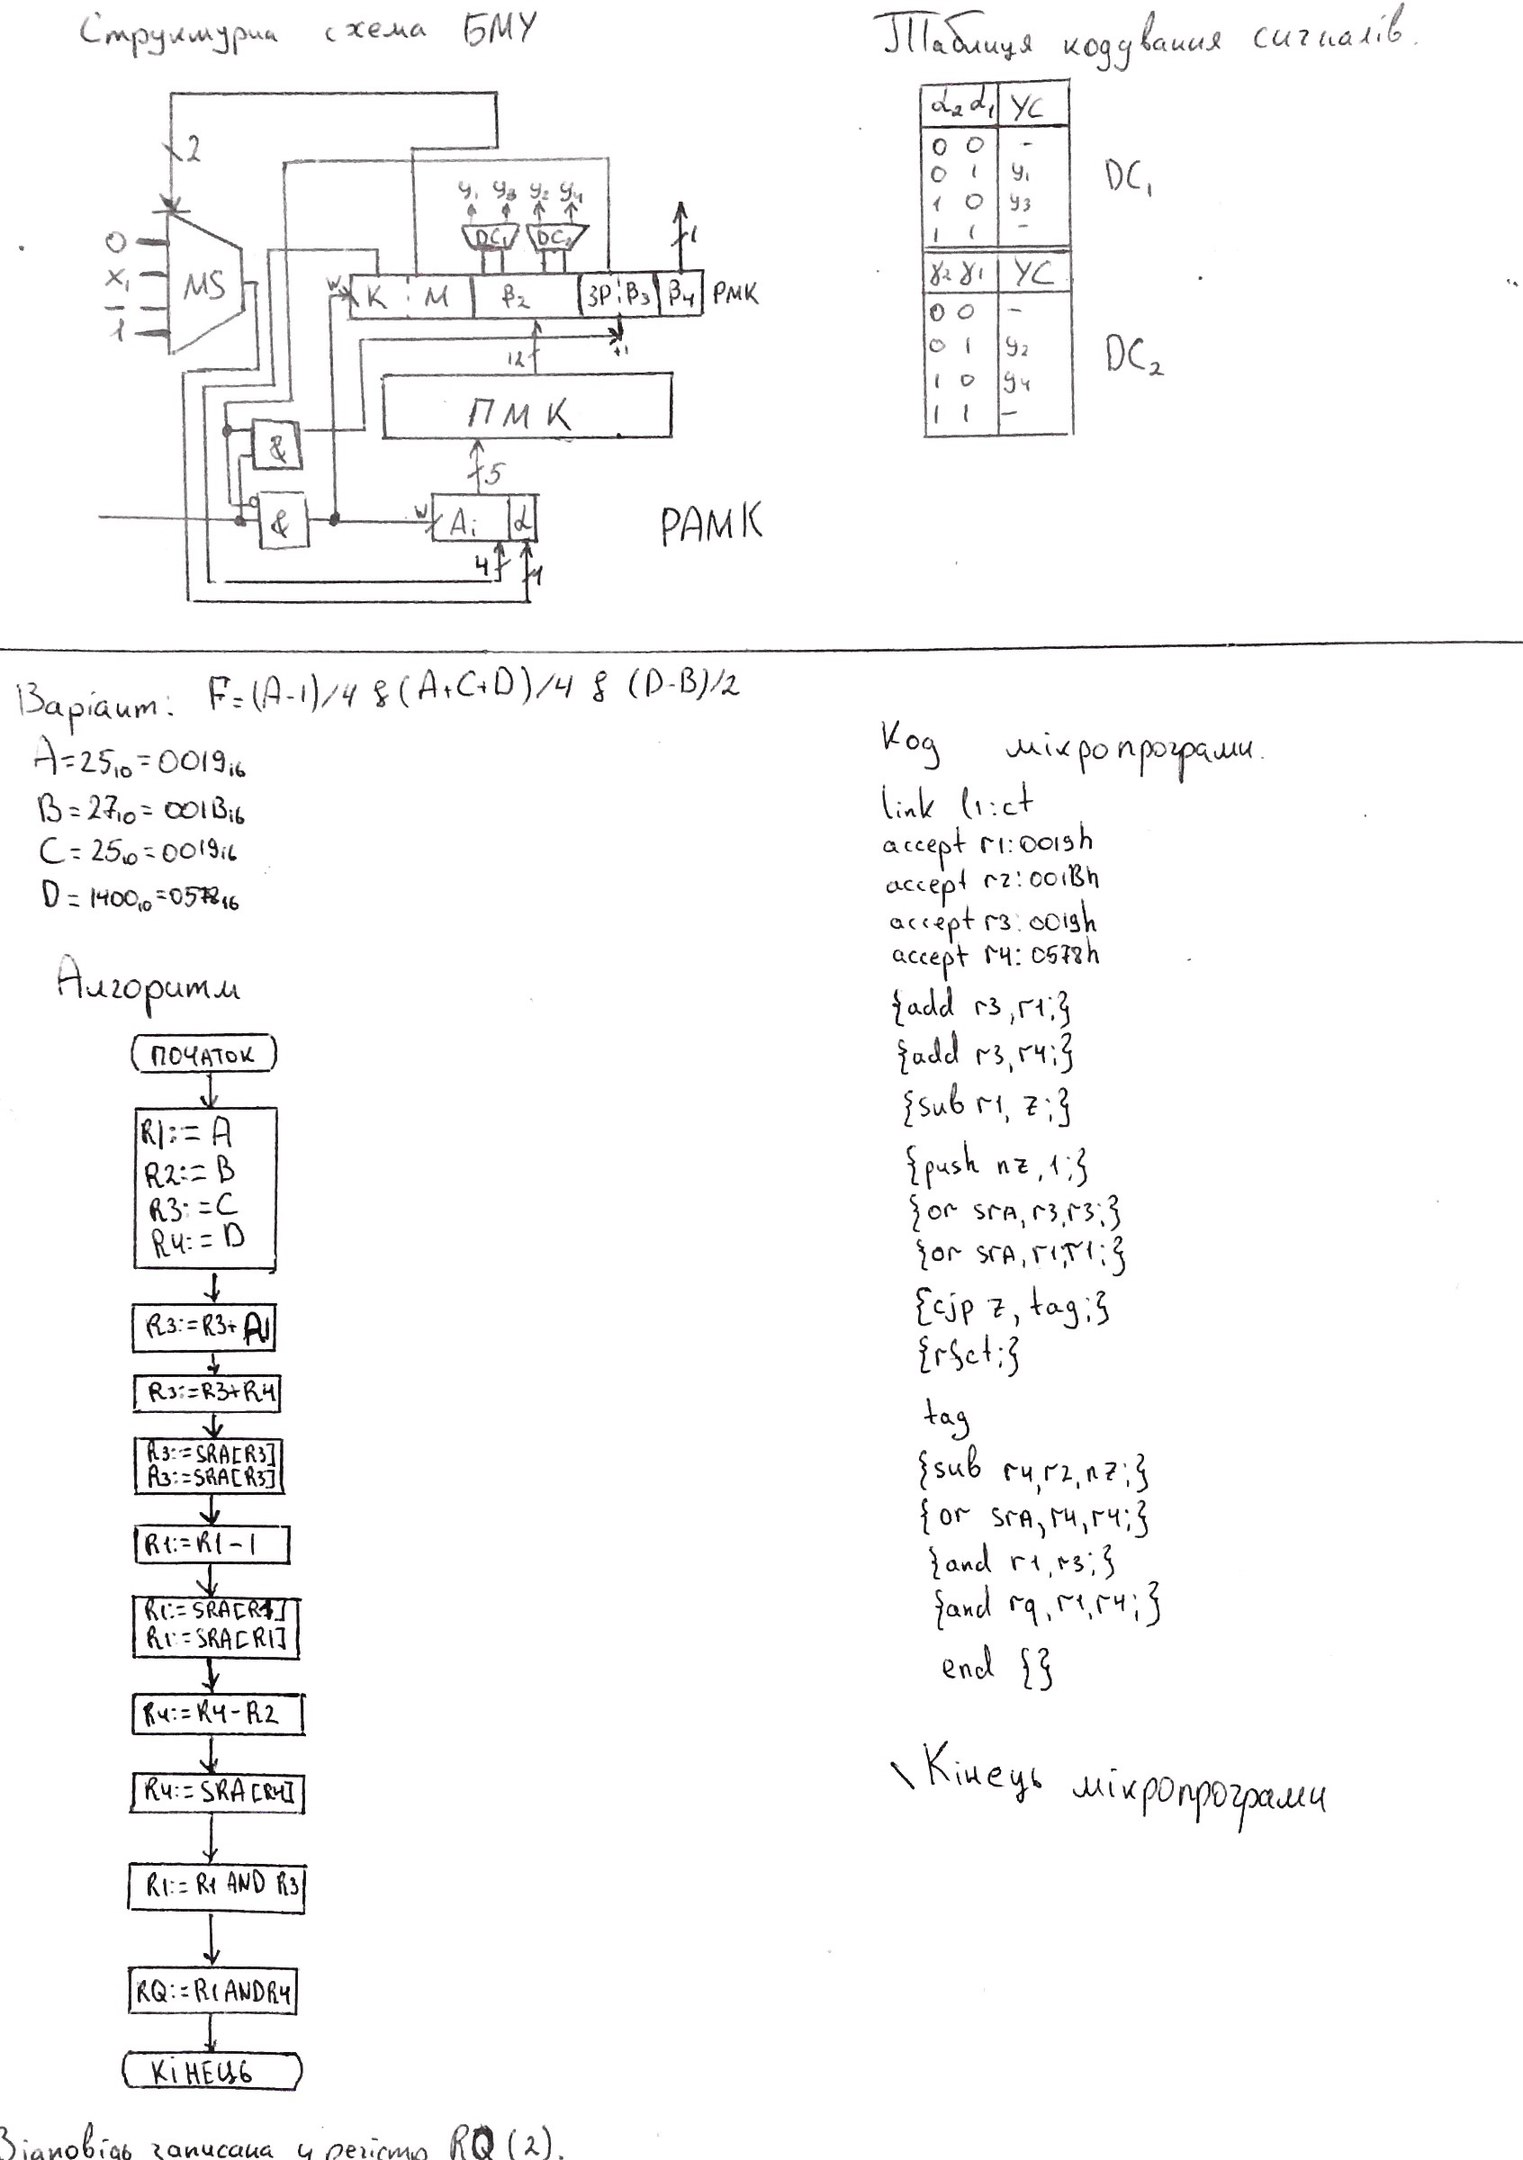 Структурна схема БМУ
2
0
X₁
–
1
MS
y₁ y₃ y₂ y₄
DC₁ DC₂
1
W
К М β₂ ЗР β₃ β₄ РМК
+1
12
ПМК
&
5
&
W
Aᵢ α
РАМК
4
1
Таблиця кодування сигналів.
α₂ α₁ УС
0 0 -
0 1 y₁
1 0 y₃
1 1 -
DC₁
γ₂ γ₁ УС
0 0 -
0 1 y₂
1 0 y₄
1 1 -
DC₂
Варіант: F=(A-1)/4 & (A+C+D)/4 & (D-B)/2
A=25₁₀=0019₁₆
B=27₁₀=001B₁₆
C=25₁₀=0019₁₆
D=1400₁₀=0578₁₆
Алгоритм
ПОЧАТОК
R1:=A
R2:=B
R3:=C
R4:=D
R3:=R3+
R3:=R3+R4
R3:=SRA[R3]
R3:=SRA[R3]
R1:=R1-1
R1:=SRA[R1]
R1:=SRA[R1]
R4:=R4-R2
R4:=SRA[R4]
R1:=R1 AND R3
RQ:=R1ANDR4
КІНЕЦЬ
Відповідь записана у регістр RQ(2).
Код мікропрограми.
link l1:ct
accept r1:0019h
accept r2:001Bh
accept r3:0019h
accept r4:0578h
{add r3,r1;}
{add r3,r4;}
{sub r1, z;}
{push nz,1;}
{or srA,r3,r3;}
{or srA,r1,r1;}
{cjp z, tag;}
{rfct;}
tag
{sub r4,r2,nz;}
{or srA,r4,r4;}
{and r1,r3;}
{and rq,r1,r4;}
end {}
\Кінець мікропрограми